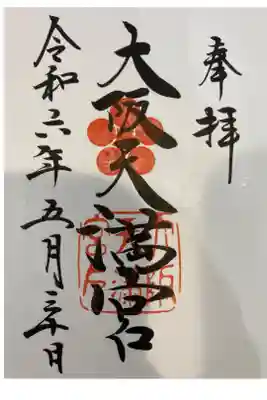 奉拝
大阪天満宮
令和六年五月 日